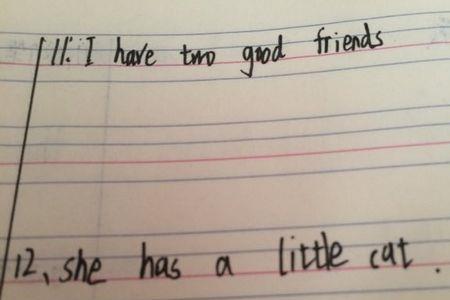 11. I have two good friends
12、she has a little cat.